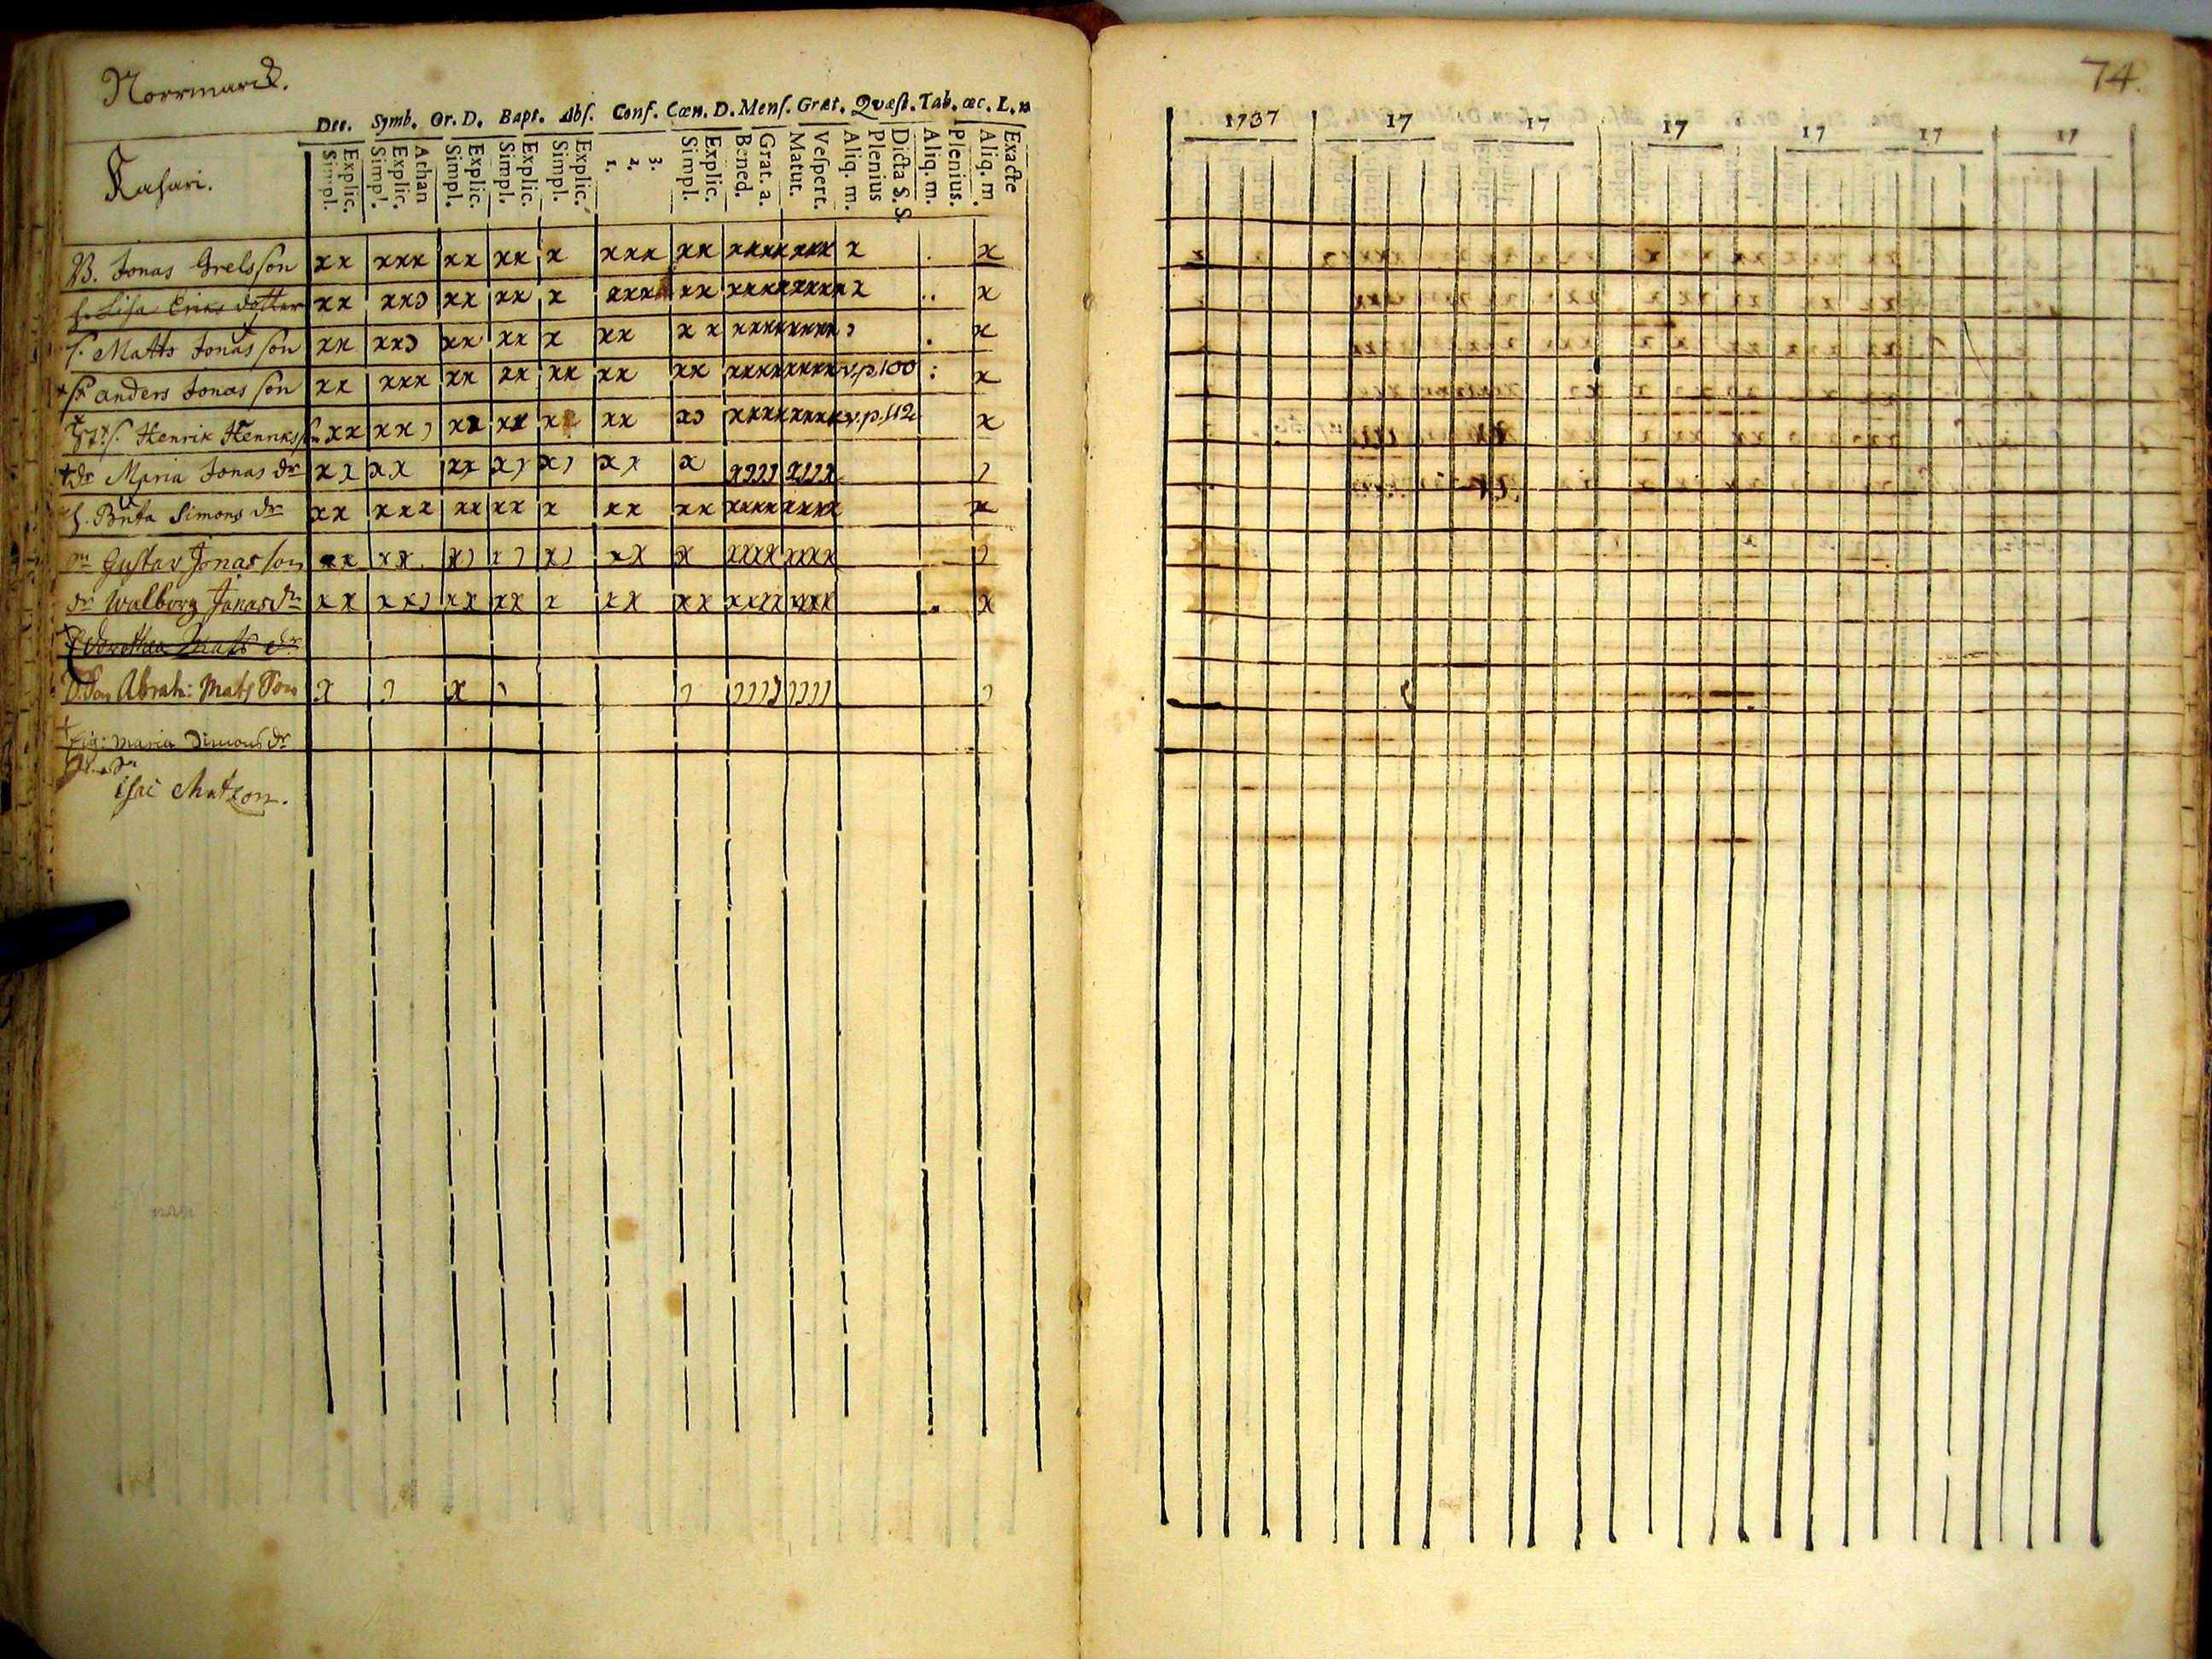 Norrmarck.
74.
Dec. Symb. Or. D. Bapt. Abs. Conf. Cœn. D. Mens. Græt. Quæst. Tab. œc. L. n
1737 17 17 17 17 17 17
Kasari.
Simpl. Explic. Simpl. Explic. Athan Simpl. Explic. Simpl. Explic. Simpl. Explic. 1. 2. 3. Simpl. Explic. Bened. Grat. a. Matut. Vespert. Aliq. m. Plenius Dicta S. S. Aliq. m. Plenius. Aliq. m. Exacte
B. Jonas Grelsson xx xxx xx xx x xxx xx xxxx xxxx x . x
h. Lisa Eriks dotter xx xxɔ xx xx x xxx xx xxxx xxxx x .. x
s. Matts Jonasson xx xxɔ xx xx x xx xx xxxx xxxx ɔ . x
anders Jonasson xx xxx xx xx xx xx xx xxxx xxxx v.p.100 : x
Henrik Henriksson xx xx) xx xx xx xx xɔ xxxx xxxx v.p.112 x
dr Maria Jonas dr xx xx xx x) x) xx x x))) x))x )
h. Simons dr xx xxx xx xx x xx xx xxxx xxxx x
Gustav Jonasson xx xx x) x) x) xx x xxxx xxxx )
dr Walborg Jonasdr xx xx) xx xx x xx xx xxxx xxxx . x
Dorothea Mats dr
Son Abrah: Mats Son x ) x ) ) )))) )))) )
Maria Simons dr
Isac Matzon.